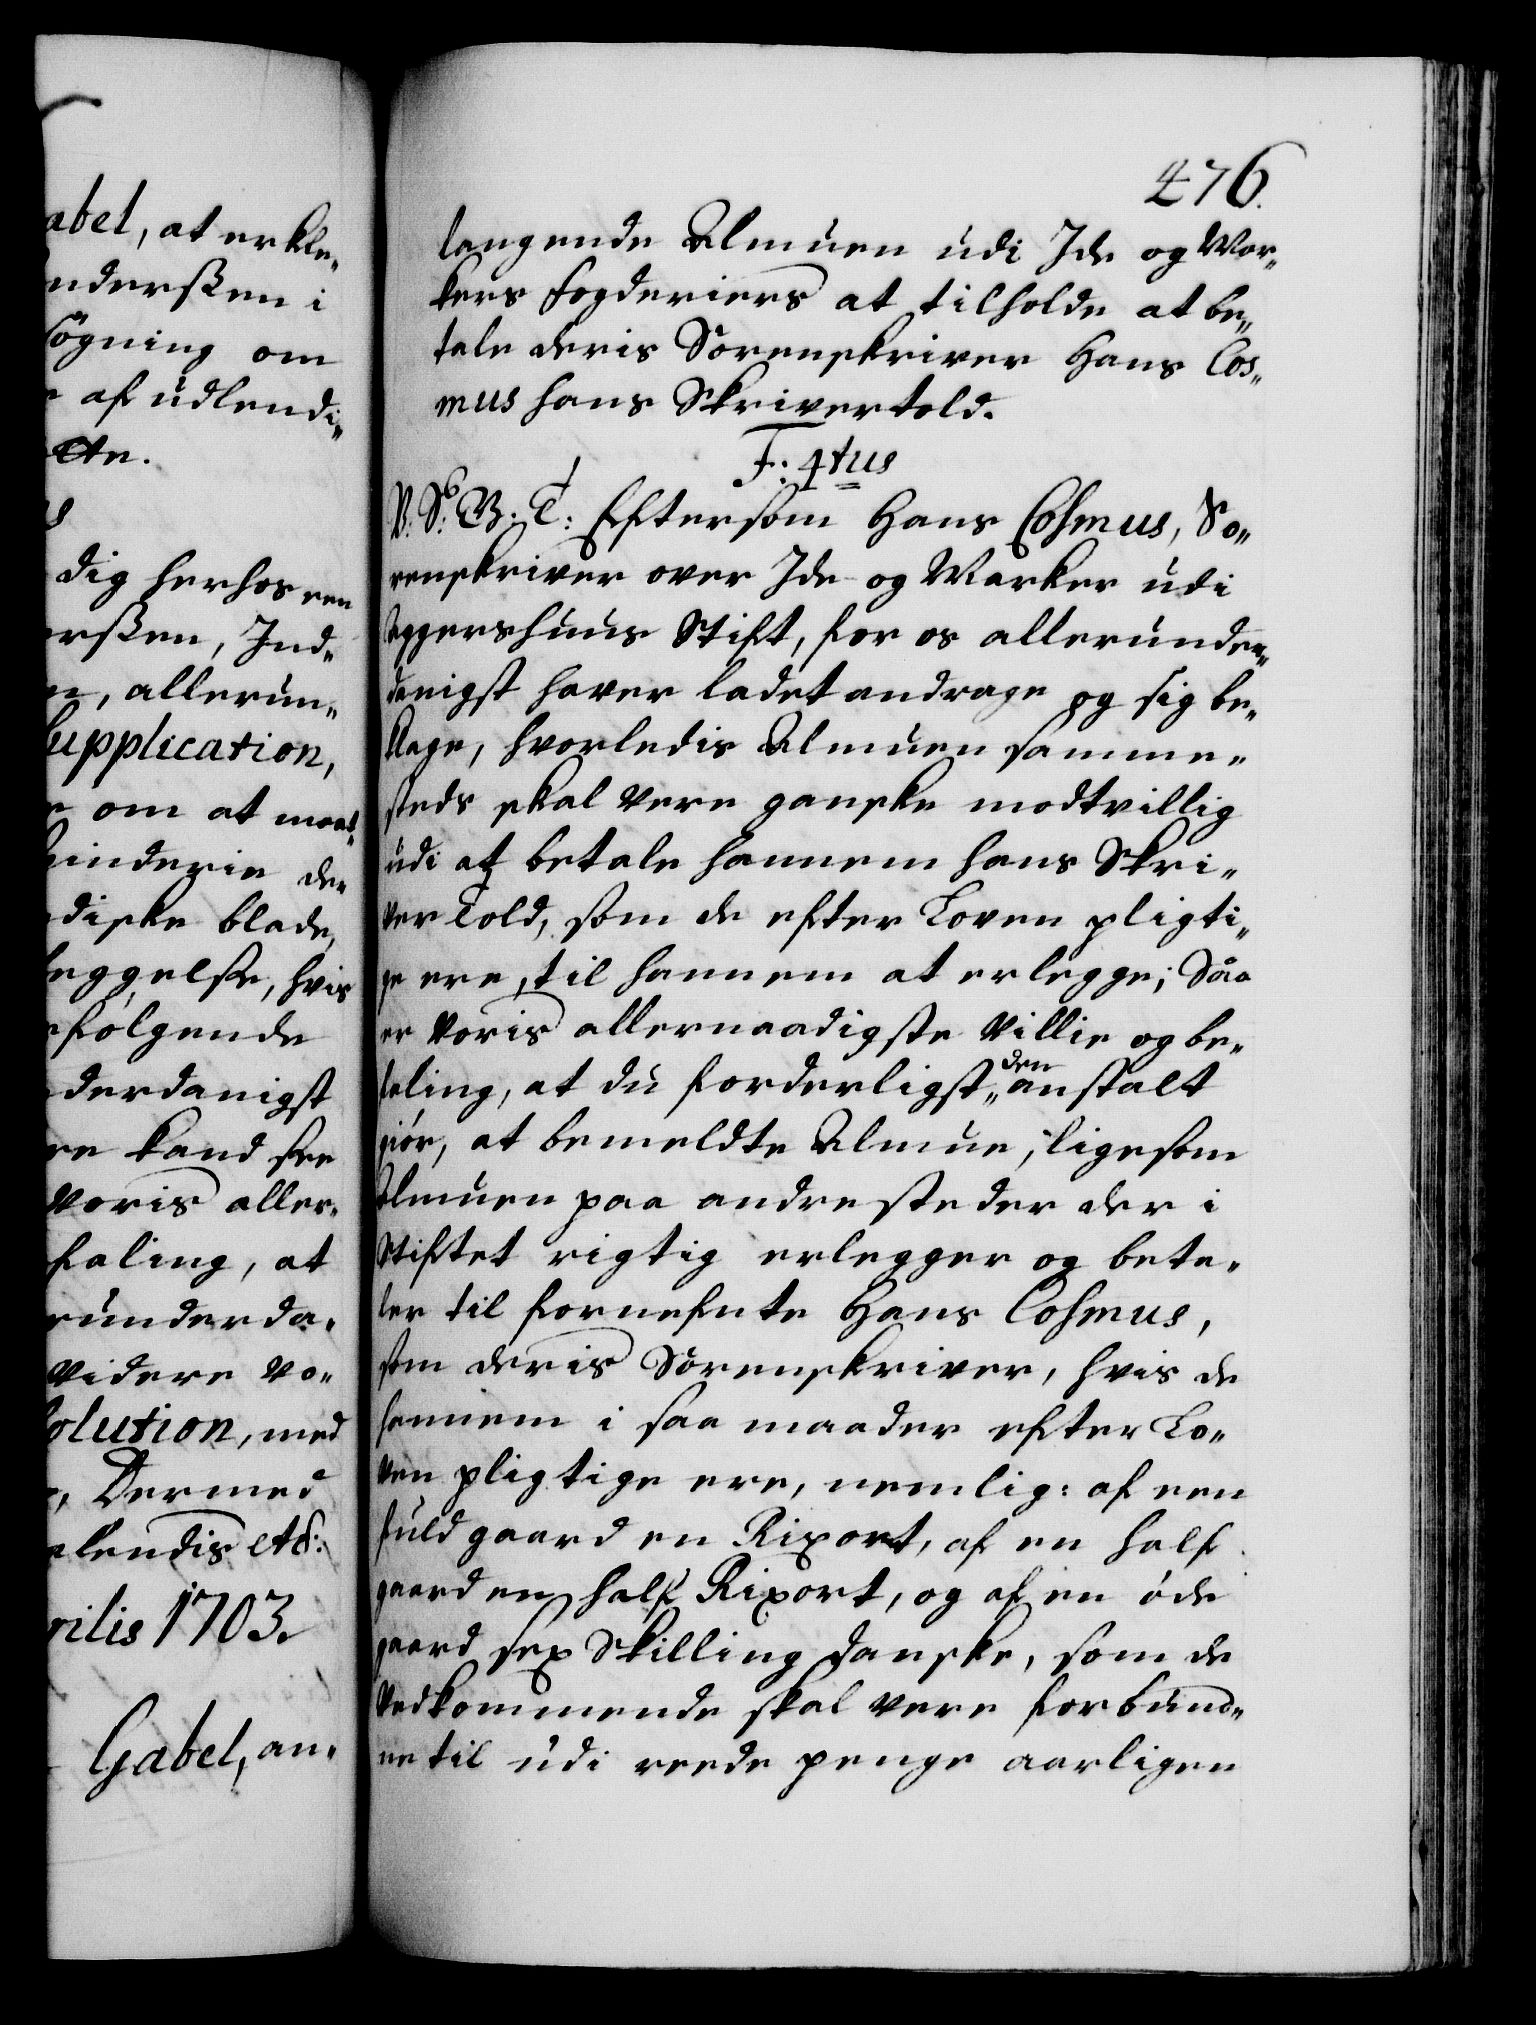 abel, at erkle„
nderßen i
søgning om
e af udlendi„
ette.
dig herhos een
erßen, Ind„
en, allerun„
Supplication,
e om at maat„
binderie de„
diske blade,
leggelse, hvis
efølgende
derdanigst
re kand see
Voris aller„
faling, at
erunderda„
videre vo„
solution, med
e, Dermed
elendis etc:
rilis 1703.
Gabel, an„
476.
langende Almuen udi Ide og Mar„
kers fogderiers at tilholde at be„
tale deris Sorenskriver Hans Cos„
mus hans Skrivertold.
F: 4tus
V. S. G. T: Eftersom Hans Cosmus, So„
renskriver over Ide og Marker udi
Aggershuus Stift, for os allerunder„
danigst haver ladet andrage og sig be„
klage, hvorledis Almuen samme„
steds skal være ganske modtvillig
udi at betale hannem hans Skri„
ver Told, som de efter Loven pligti„
ge ere, til hannem at erlegge; Saa
er Voris allernaadigste Villie og be„
faling, at du forderligst„ den anstalt
giør, at bemeldte Almue, ligesom
Almuen paa andre steder der i
Stiftet rigtig erlegger og beta„
ler til fornefnte Hans Cosmus,
som deris Sorenskriver, hvis de
hannem i saa maader efter Lo„
ven pligtige ere, nemlig: af een
fuld gaard en Rixort, af en half
gaard en half Rixort, og af en øde
gaard sex Skilling danske, som de
Vedkommende skal være forbund„
ne til udi reede penge aarligen